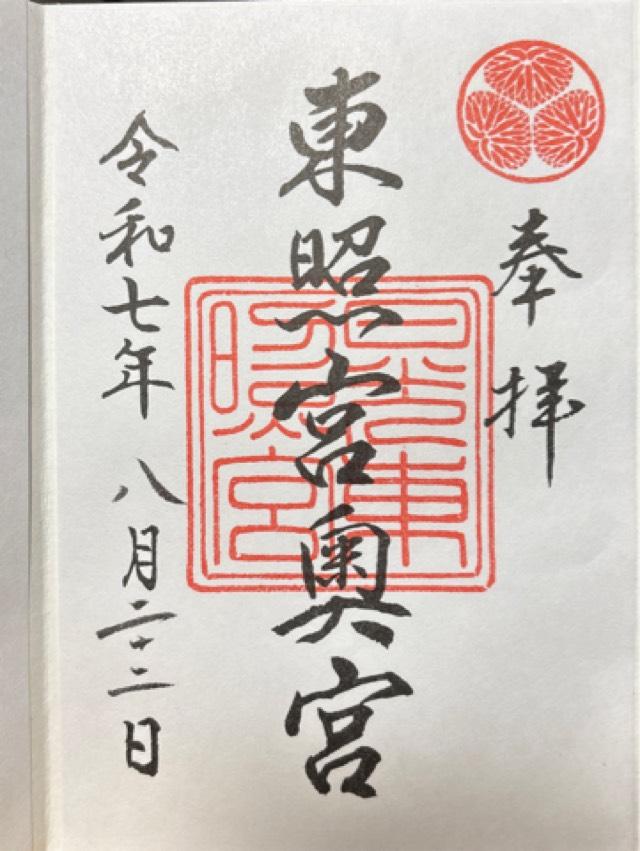 奉拝
東照宮奥宮
日光東
照宮
令和七年八月二十二日